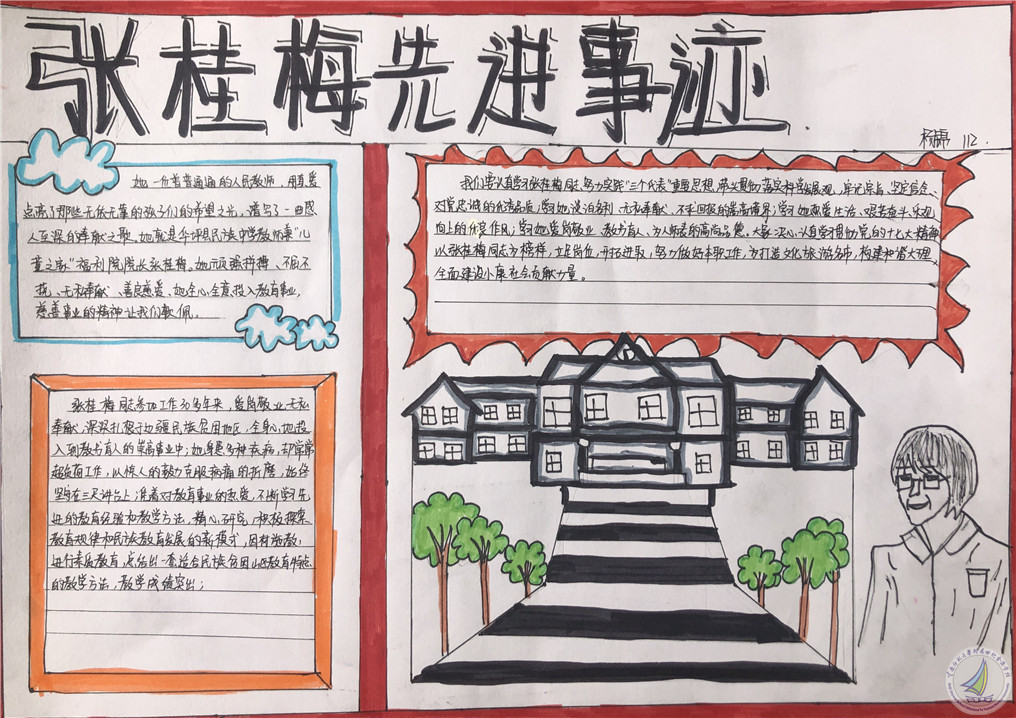 张桂梅先进事迹
112.
她一份着普普通通的人民教师,用真爱
点亮了那些无依无靠的孩子们的希望之光,谱写了一曲感
人至深的奉献之歌。她就是华坪县民族中学教师兼"儿
童之家"福利院院长张桂梅。她顽强拼搏、不屈不
挠、无私奉献、善良慈爱。她全心全意投入教育事业,
慈善事业的精神让我们敬佩。
我们要认真学习张桂梅同志,努力实践"三个代表"重要思想,带头贯彻落实科学发展观,牢记宗旨,坚定信念、
对党忠诚的优秀品质;学习她淡泊名利、无私奉献、不求回报的崇高境界;学习她热爱生活、艰苦奋斗、乐观
向上的优良作风;学习她爱岗敬业、教书育人、为人师表的高尚品德。大家决心,认真学习贯彻党的十七大精神
以张桂梅同志为榜样,立足岗位,开拓进取,努力做好本职工作,为打造文化旅游名市,构建和谐大理,
全面建设小康社会贡献力量。
张桂梅同志参加工作30多年来,爱岗敬业、无私
奉献,深深扎根于边疆民族贫困地区,全身心地投
入到教书育人的崇高事业中;她身患多种疾病,却常常
超负荷工作,以惊人的毅力克服病痛的折磨,始终
坚守在三尺讲台上;凭着对教育事业的热爱,不断学习先
进的教育经验和教学方法,精心研究,积极探索
教育规律和民族教育发展的新模式,因材施教,
进行素质教育,总结出一套适合民族贫困山区教育特点
的教学方法,教学成绩突出;